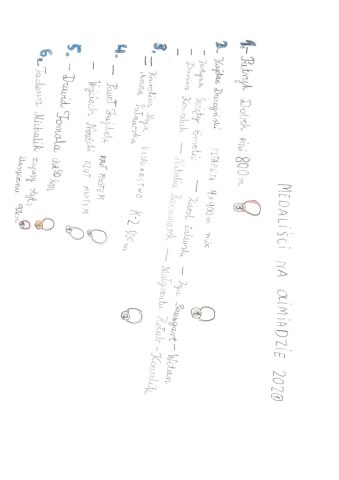 MEDALIŚCI NA OLIMIADZIE 2020
1. - Patryk Dobek bieg 800 m
2. - Kajetan Duszyński SZTAFETA 4x400m mix
- Justyna Święty-Ersetic - Karol Zalewski - Iga Baumgart-Witan
- Dariusz Kowaluk - Natalia Kaczmarek - Małgorzata Hołub-Kowalik
3. - Karolina Naja KAJAKARSTWO K-2 500m
Anna Puławska
4. - Paweł Fajdek RZUT MŁOTEM
- Wojciech Nowicki RZUT MŁOTEM
5. - Dawid Tomala chód 50 km
6. Tadeusz Michalik zapasy styl: